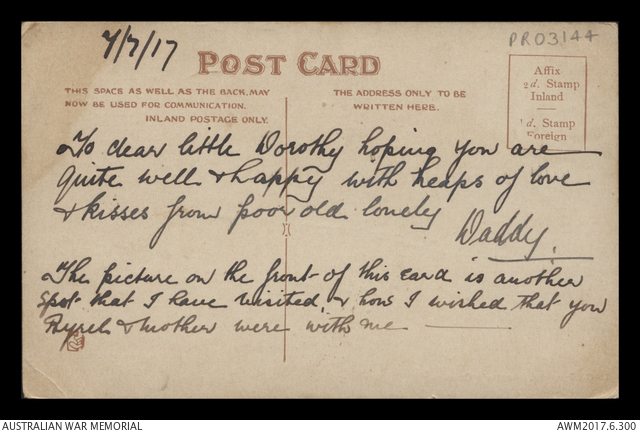 7/7/17
PR03144
POST CARD
THIS SPACE AS WELL AS THE BACK, MAY
NOW BE USED FOR COMMUNICATION.
INLAND POSTAGE ONLY.
THE ADDRESS ONLY TO BE
WRITTEN HERE.
Affix
½d. Stamp
Inland
1d. Stamp
Foreign
To dear little Dorothy hoping you are
quite well & happy with heaps of love
& kisses from poor old lonely
Daddy.
The picture on the front of this card is another
spot that I have visited, & how I wished that you
& mother were with me
AUSTRALIAN WAR MEMORIAL
AWM2017.6.300